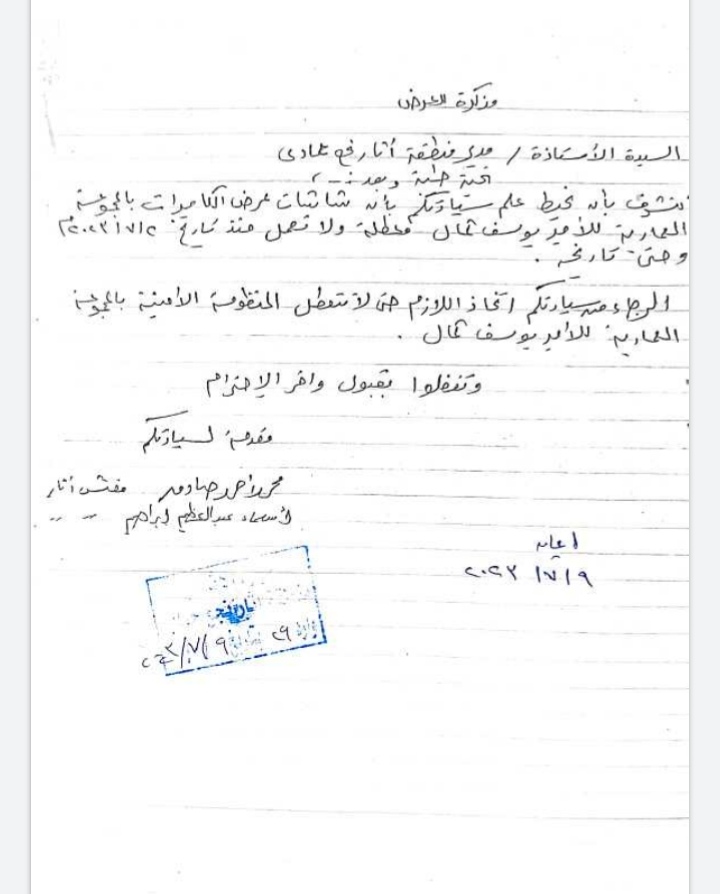 مذكرة للعرض
السيدة الأستاذة / مدير منطقة آثار نجع حمادى
تحية طيبة وبعد :- ،
نتشرف بأن نحيط علم سيادتكم بأن شاشات عرض الكاميرات بالمجموعة
المعمارية للأمير يوسف كمال معطلة ولا تعمل منذ تاريخ ٢٠٢٣/٧/٢م
وحتى تاريخه .
الرجاء من سيادتكم اتخاذ اللازم حتى لا تتعطل المنظومة الأمنية بالمجموعة
المعمارية للأمير يوسف كمال .
وتفضلوا بقبول وافر الإحترام
مقدمة لسيادتكم
محمد أحمد صادق مفتش آثار
أسماء عبدالعظيم إبراهيم " "
٢٠٢٣/٧/٩
٢٩
٢٠٢٣/٧/٩